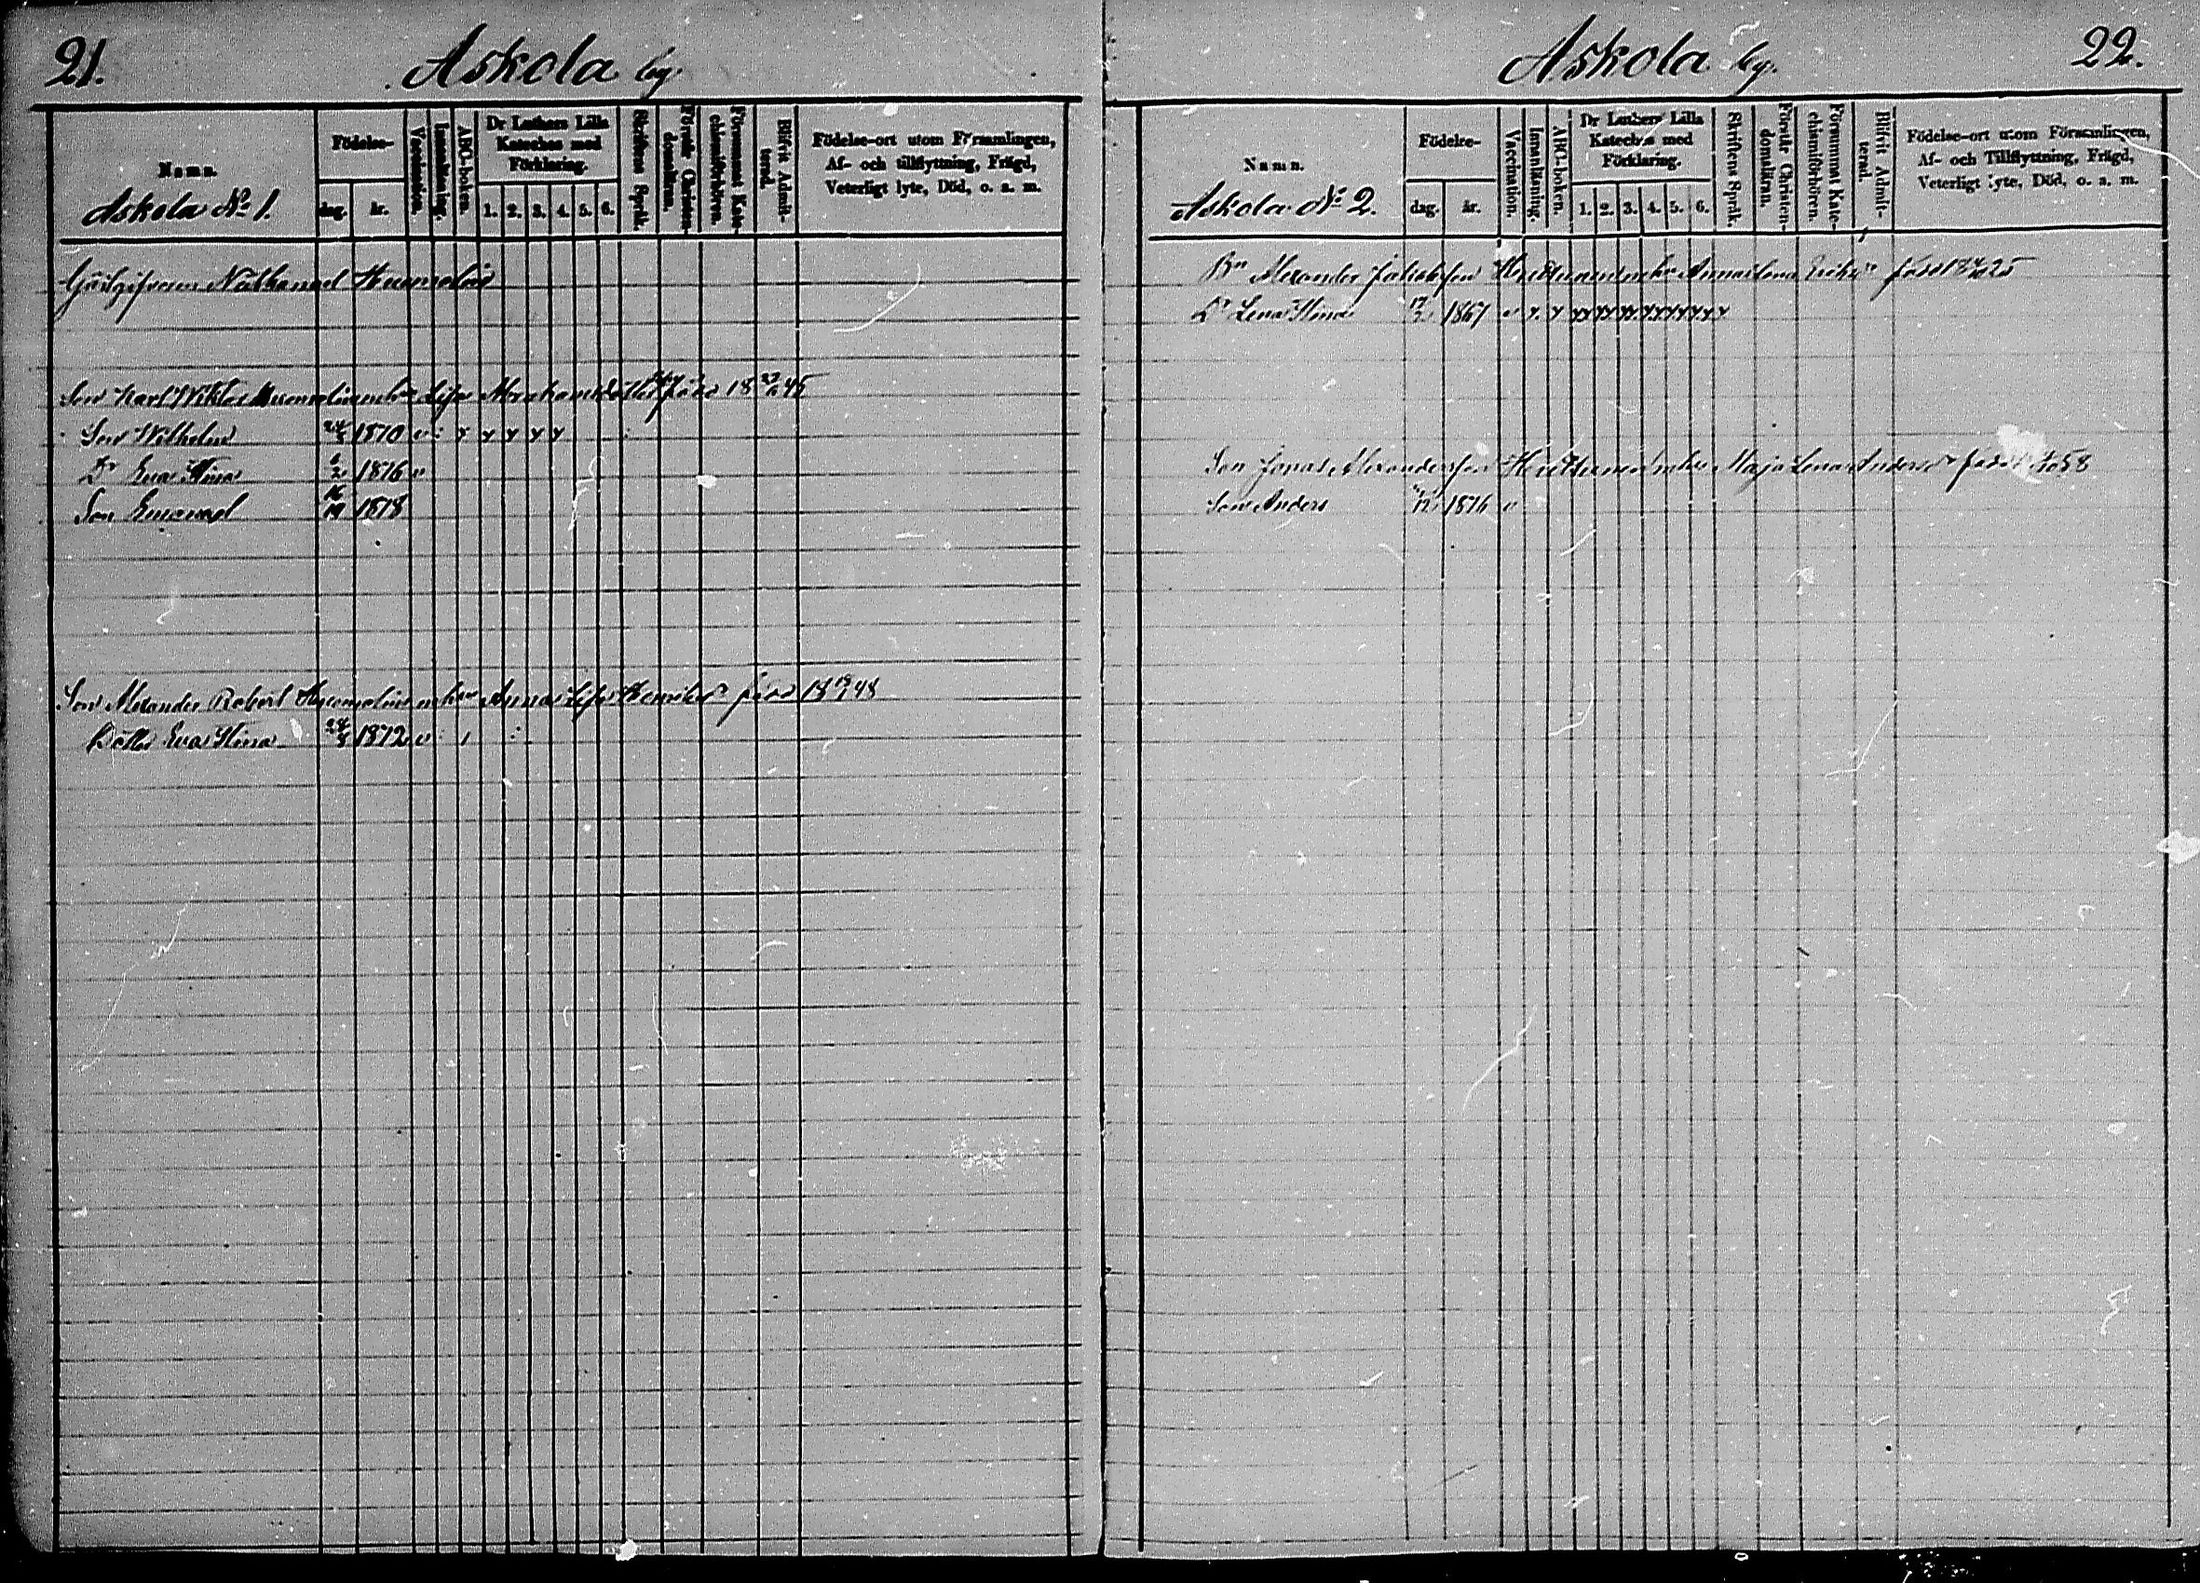 21.
Askola by.
Namn.
Askola No 1.
Födelse-
dag.
år.
Vaccination.
Innanläsning.
ABC-boken.
Dr Luthers Lilla Kateches med Förklaring.
1. 2. 3. 4. 5. 6.
Skriftens Språk.
Förstår Christendomsläran.
Försummat Katechismiförhören.
Blifvit Admitterad.
Födelse-ort utom Församlingen,
Af- och tillflyttning, Frägd,
Veterligt lyte, Död, o. s. m.
Gästgifvaren Nathanael
Son Karl Lisa född 18 45
Son Wilhelm 1870 v
Dr Eva Stina 1876 v
Son Emanuel 1878
Son Alexander Robert Anna Lisa född 18 48
Dotter Eva Stina 1872 v
Askola by.
22.
Namn.
Askola No 2.
Födelse-
dag.
år.
Vaccination.
Innanläsning.
ABC-boken.
Dr Luthers Lilla
Kateches med
Förklaring.
1. 2. 3. 4. 5. 6.
Skriftens Språk.
Förstår Christendomsläran.
Försummat Katechismiförhören.
Blifvit Admitterad.
Födelse-ort utom Församlingen,
Af- och Tillflyttning, Frägd,
Veterligt lyte, Död, o. a. m.
Bn Alexander Jakobsson Anna Lena född 25
Dr Lena Stina 1867 v
Son Jonas Alexandersson Maja Lena 58
Son Anders 1876 v